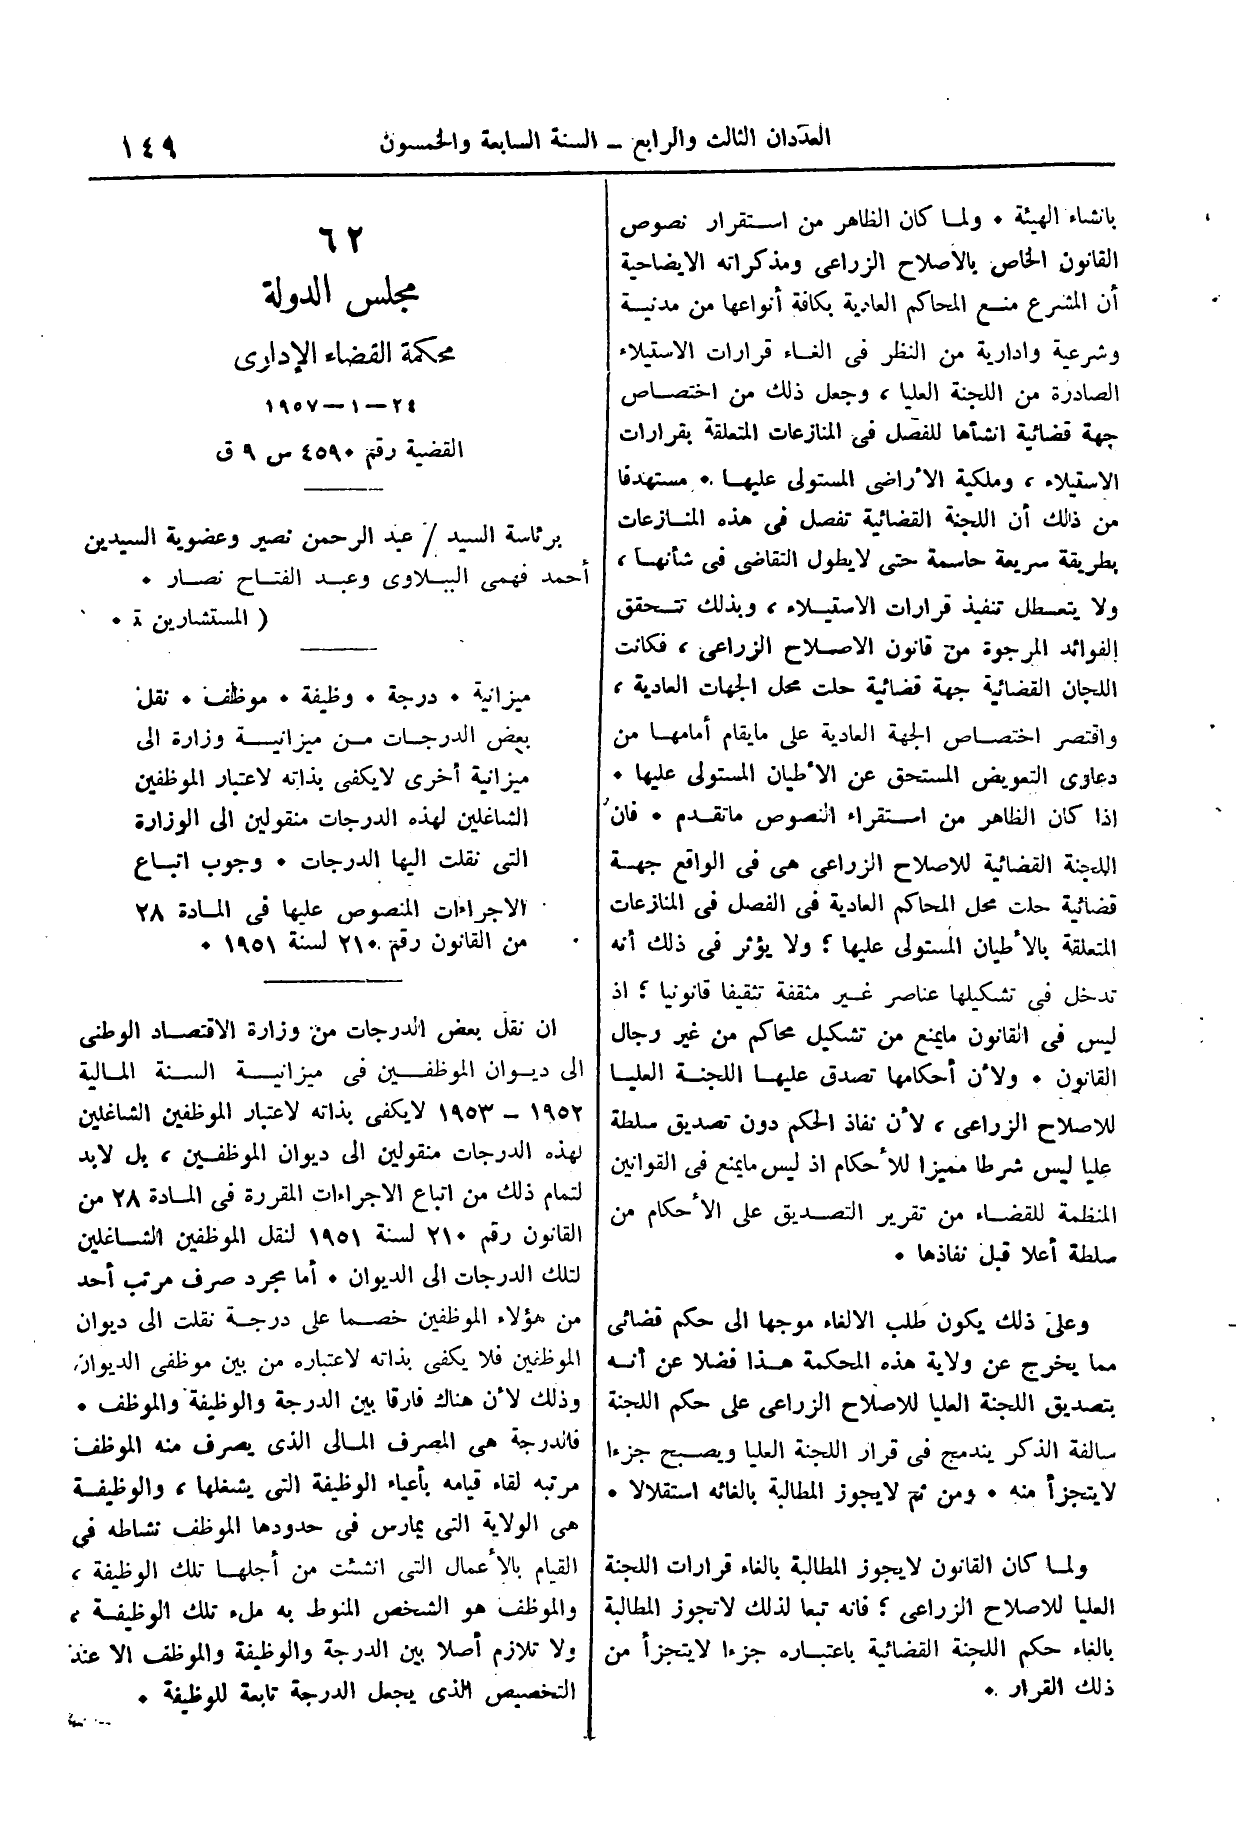 العددان الثالث والرابع – السنة السابعة والخمسون
١٤٩
بانشاء الهيئة • ولمـا كان الظاهر من استقرار نصوص
القانون الخاص بالاصلاح الزراعى ومذكراته الايضاحية
أن المشرع منع المحاكم العادية بكافة أنواعها من مدنية
وشرعية وادارية من النظر فى الغاء قرارات الاستيلاء
الصادرة من اللجنة العليا ، وجعل ذلك من اختصاص
جهة قضائية انشأها للفصل فى المنازعات المتعلقة بقرارات
الاستيلاء ، وملكية الأراضى المستولى عليها • مستهدفا
من ذلك أن اللجنة القضائية تفصل فى هذه المنازعات
بطريقة سريعة حاسمة حتى لايطول التقاضى فى شأنها ،
ولا يتعطل تنفيذ قرارات الاستيلاء ، وبذلك تتحقق
الفوائد المرجوة من قانون الاصلاح الزراعى ، فكانت
اللجان القضائية جهة قضائية حلت محل الجهات العادية ،
واقتصر اختصاص الجهة العادية على مايقام أمامها من
دعاوى التعويض المستحق عن الأطيان المستولى عليها •
اذا كان الظاهر من استقراء النصوص ماتقدم • فان
اللجنة القضائية للاصلاح الزراعى هى فى الواقع جهة
قضائية حلت محل المحاكم العادية فى الفصل فى المنازعات
المتعلقة بالأطيان المستولى عليها ؟ ولا يؤثر فى ذلك أنه
تدخل فى تشكيلها عناصر غير مثقفة تثقيفا قانونيا ؟ اذ
ليس فى القانون مايمنع من تشكيل محاكم من غير رجال
القانون • ولأن أحكامها تصدق عليها اللجنة العليا
للاصلاح الزراعى ، لأن نفاذ الحكم دون تصديق سلطة
عليا ليس شرطا مميزا للأحكام اذ ليس مايمنع فى القوانين
المنظمة للقضاء من تقرير التصديق على الأحكام من
سلطة أعلا قبل نفاذها •
وعلى ذلك يكون طلب الالغاء موجها الى حكم قضائى
مما يخرج عن ولاية هذه المحكمة هذا فضلا عن أنه
بتصديق اللجنة العليا للاصلاح الزراعى على حكم اللجنة
سالفة الذكر يندمج فى قرار اللجنة العليا ويصبح جزءا
لايتجزأ منه • ومن ثم لايجوز المطالبة بالغائه استقلالا •
ولمـا كان القانون لايجوز المطالبة بالغاء قرارات اللجنة
العليا للاصلاح الزراعى ؟ فانه تبعا لذلك لاتجوز المطالبة
بالغاء حكم اللجنة القضائية باعتباره جزءا لايتجزأ من
ذلك القرار •
٦٢
مجلس الدولة
محكمة القضاء الإدارى
٢٤ – ١ – ١٩٥٧
القضية رقم ٤٥٩٠ س ٩ ق
برئاسة السيد / عبد الرحمن نصير وعضوية السيدين
أحمد فهمى الببلاوى وعبد الفتاح نصار •
( المستشارين ة •
ميزانية • درجة • وظيفة • موظف • نقل
بعض الدرجات من ميزانية وزارة الى
ميزانية أخرى لايكفى بذاته لاعتبار الموظفين
الشاغلين لهذه الدرجات منقولين الى الوزارة
التى نقلت اليها الدرجات • وجوب اتباع
الاجراءات المنصوص عليها فى المادة ٢٨
من القانون رقم ٢١٠ لسنة ١٩٥١ •
ان نقل بعض الدرجات من وزارة الاقتصاد الوطنى
الى ديوان الموظفين فى ميزانية السنة المالية
١٩٥٢ – ١٩٥٣ لايكفى بذاته لاعتبار الموظفين الشاغلين
لهذه الدرجات منقولين الى ديوان الموظفين ، بل لابد
لتمام ذلك من اتباع الاجراءات المقررة فى المادة ٢٨ من
القانون رقم ٢١٠ لسنة ١٩٥١ لنقل الموظفين الشاغلين
لتلك الدرجات الى الديوان • أما مجرد صرف مرتب أحد
من هؤلاء الموظفين خصما على درجة نقلت الى ديوان
الموظفين فلا يكفى بذاته لاعتباره من بين موظفى الديوان،
وذلك لأن هناك فارقا بين الدرجة والوظيفة والموظف •
فالدرجة هى المصرف المالى الذى يصرف منه الموظف
مرتبه لقاء قيامه بأعباء الوظيفة التى يشغلها ، والوظيفة
هى الولاية التى يمارس فى حدودها الموظف نشاطه فى
القيام بالأعمال التى انشئت من أجلها تلك الوظيفة ،
والموظف هو الشخص المنوط به ملء تلك الوظيفة ،
ولا تلازم أصلا بين الدرجة والوظيفة والموظف الا عند
التخصيص الذى يجعل الدرجة تابعة للوظيفة •